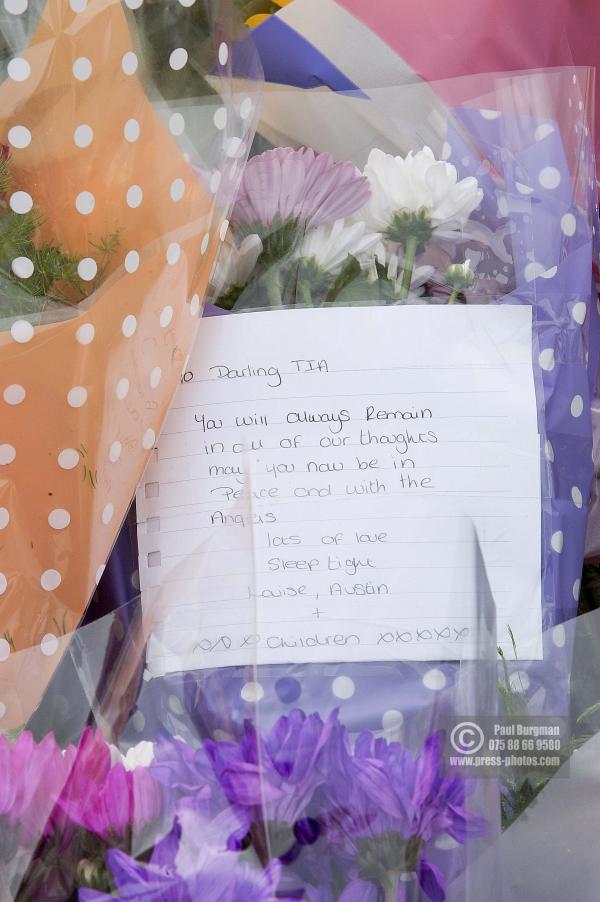 To Darling TIA
You will always Remain
in all of our thoughts
may you now be in
Peace and with the
Angels
lots of love
Sleep tight
Louise, Austin
+
xxx Children xxxxxx
© Paul Burgman
075 88 66 9580
www.press-photos.com